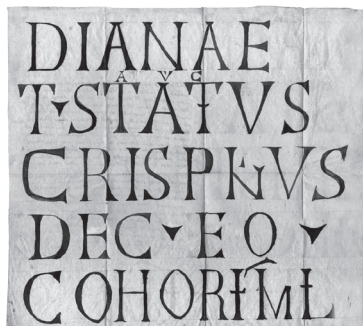 DIANAE
AVG
T·STATVS
CRISPINVS
DEC · EQ ·
COHORI